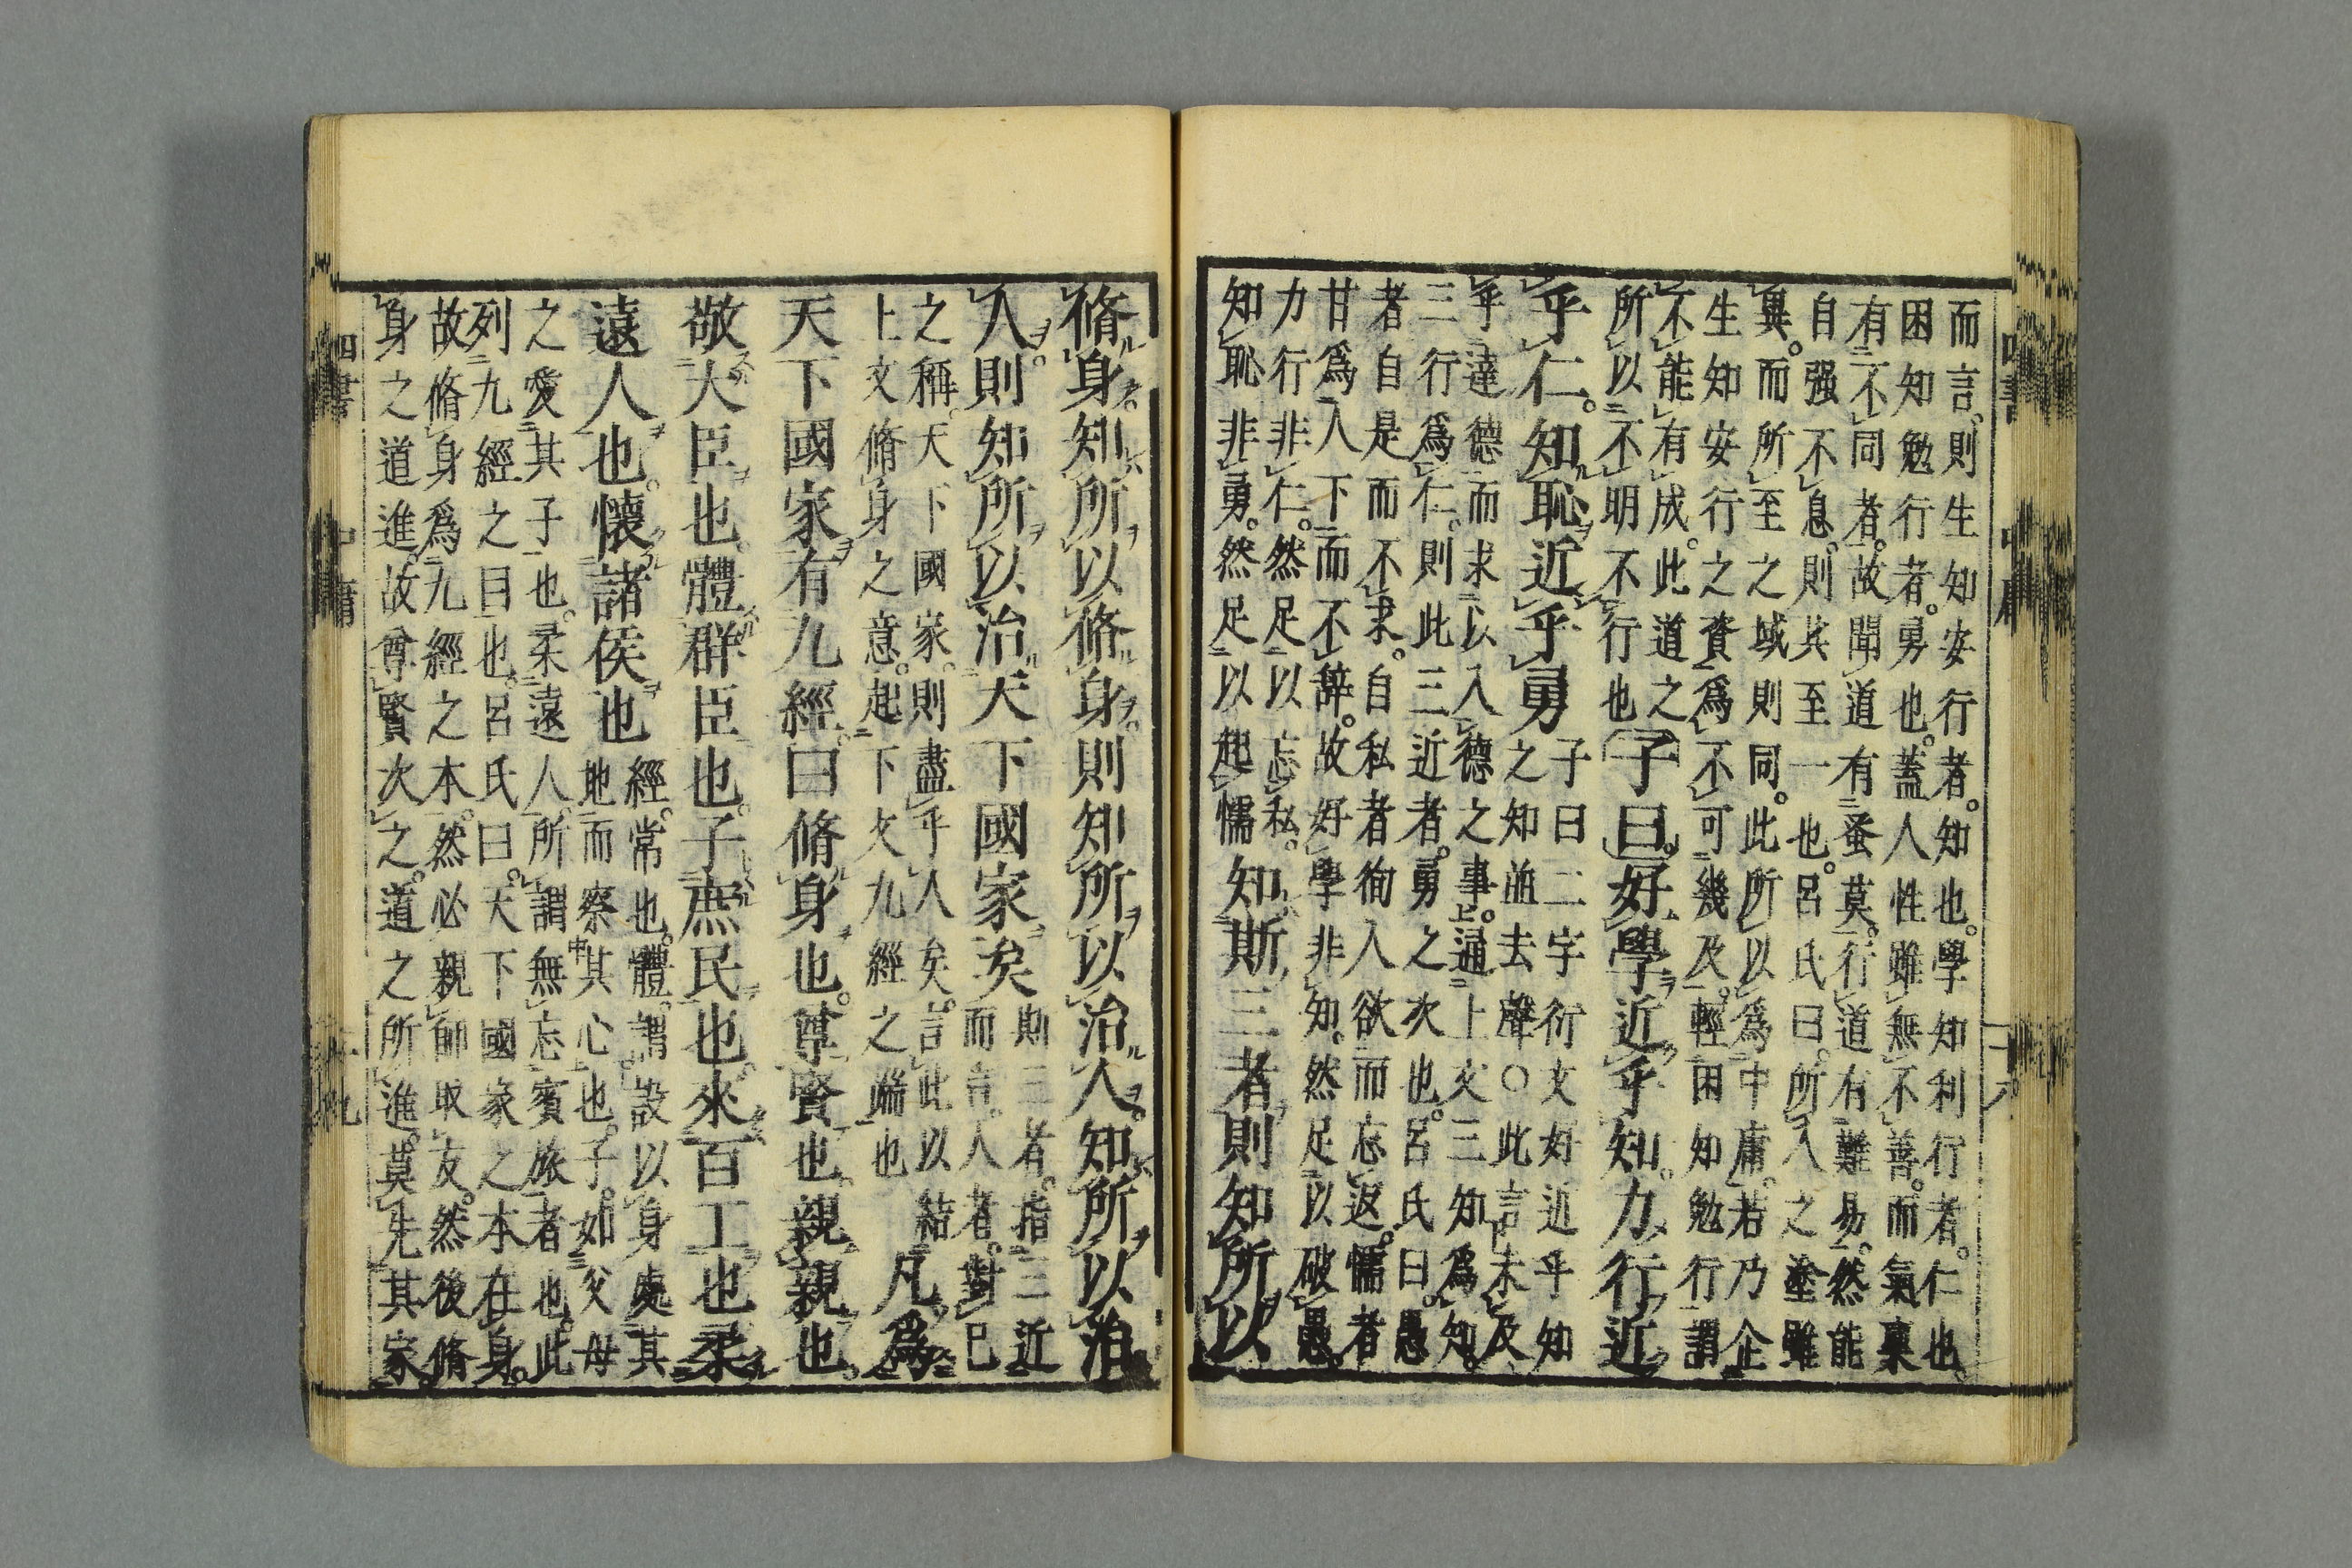 四書 中庸
而言。則生知安行者。知也。學知利行者。仁也。
困知勉行者。勇也。蓋人性雖無不善。而氣稟
有不同者。故聞道有蚤莫。行道有難易。然能
自强不息。則其至一也。呂氏曰。所入之塗雖
異。而所至之域則同。此所以爲中庸。若乃企
生知安行之資爲不可幾及。輕困知勉行謂
不能有成。此道之
所以不明不行也
子曰。好學近乎知。力行近
乎仁。知恥近乎勇
子曰二字衍文好近乎知
之知並去聲○此言未及
乎達德而求以入德之事。通上文三知爲知。
三行爲仁。則此三近者。勇之次也。呂氏曰。愚
者自是而不求。自私者徇人欲而忘返。懦者
甘爲人下而不辭。故好學非知。然足以破愚。
力行非仁。然足以忘私。
知恥非勇。然足以起懦
知斯三者則知所以
脩身。知所以脩身。則知所以治人。知所以治
人。則知所以治天下國家矣
斯三者。指三近
而言。人者。對己
之稱。天下國家。則盡乎人矣。言此以結
上文脩身之意。起下文九經之端也
凡爲
天下國家有九經。曰脩身也。尊賢也。親親也。
敬大臣也。體群臣也。子庶民也。來百工也。柔
遠人也。懷諸侯也
經。常也。體。謂設以身處其
地而察其心也。子。如父母
之愛其子也。柔遠人所謂無忘賓旅者也。此
列九經之目也。呂氏曰。天下國家之本在身。
故脩身爲九經之本。然必親師取友。然後脩
身之道進。故尊賢次之。道之所進。莫先其家
四書 中庸